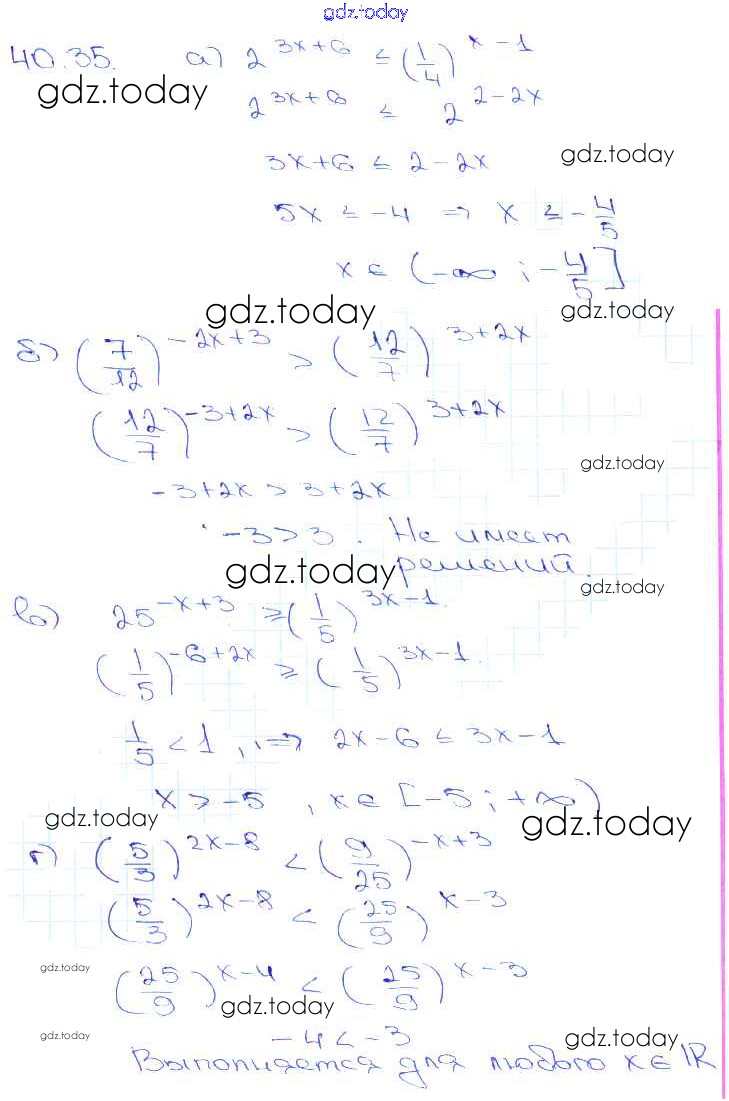 gdz.today
40.35. а) 2^{3x+6} ≤ (1/4)^{x-1}
gdz.today
2^{3x+6} ≤ 2^{2-2x}
3x+6 ≤ 2-2x gdz.today
5x ≤ -4 ⇒ x ≤ -4/5
x ∈ (-∞ ; -4/5]
gdz.today gdz.today
б) (7/12)^{-2x+3} > (12/7)^{3+2x}
(12/7)^{-3+2x} > (12/7)^{3+2x}
gdz.today
-3+2x > 3+2x
-3 > 3. Не имеет
gdz.today решений. gdz.today
в) 25^{-x+3} ≥ (1/5)^{3x-1}.
(1/5)^{-6+2x} ≥ (1/5)^{3x-1}.
1/5 < 1, ⇒ 2x-6 ≤ 3x-1
x ≥ -5, x ∈ [-5 ; +∞)
gdz.today gdz.today
г) (5/3)^{2x-8} < (9/25)^{-x+3}
(5/3)^{2x-8} < (25/9)^{x-3}
gdz.today (25/9)^{x-4} < (25/9)^{x-3}
gdz.today
gdz.today -4 < -3 gdz.today
Выполняется для любого x ∈ ℝ